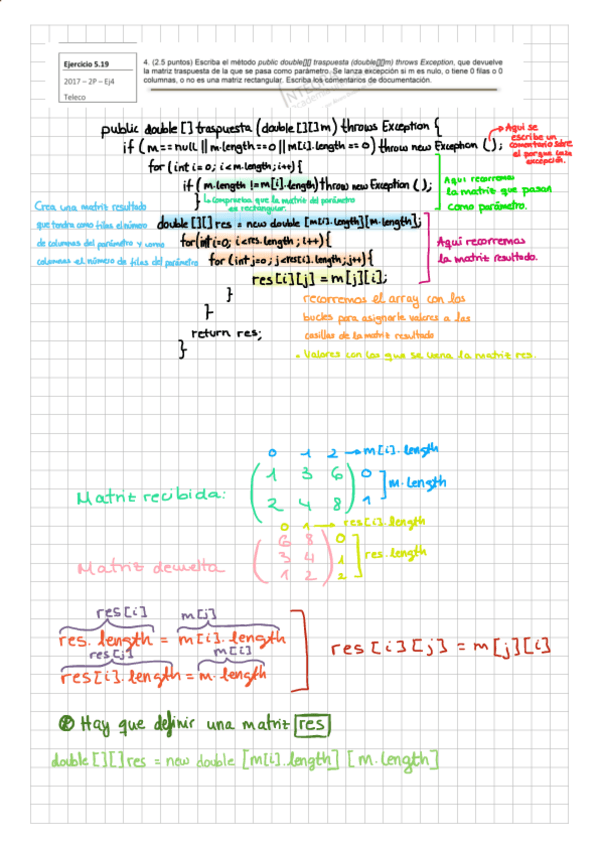 Ejercicio 5.19
2017 – 2P – Ej4
Teleco
4. (2.5 puntos) Escriba el método public double[][] traspuesta (double[][]m) throws Exception, que devuelve
la matriz traspuesta de la que se pasa como parámetro. Se lanza excepción si m es nulo, o tiene 0 filas o 0
columnas, o no es una matriz rectangular. Escriba los comentarios de documentación.
public double [] traspuesta (double[][]m) throws Exception {
if (m==null || m.length==0 || m[i].length==0) throw new Exception ();
Aqui se
escribe un
comentario sobre
el porque
excepción.
for (int i=0; i<m.length; i++) {
if (m.length != m[i].length) throw new Exception ();
} la comprueba que la matriz del parámetro
es rectangular.
Aqui recorremos
la matriz que pasan
como parámetro.
Crea una matriz resultado
que tendra como filas el número
de columnas del parámetro y como
columnas el número de filas del parámetro
double[][] res = new double [m[i].length][m.length];
for(int i=0; i<res.length; i++){
for (int j=0; j<res[i].length; j++){
res[i][j] = m[j][i];
Aqui recorremos
la matriz resultado.
}
}
return res;
}
recorremos el array con los
bucles para asignarle valores a las
casillas de la matriz resultado
• Valores con los que se llena la matriz res.
0 1 2 → m[i].length
Matriz recibida:
1 3 6 0
2 4 8 1
m.length
0 1 → res[i].length
Matriz devuelta
6 8 0
3 4 1
1 2 2
res.length
res[i] m[j]
res.length = m[i].length
res[j] m[i]
res[i].length = m.length
res[i][j] = m[j][i]
Hay que definir una matriz res
double [][] res = new double [m[i].length] [m.length]